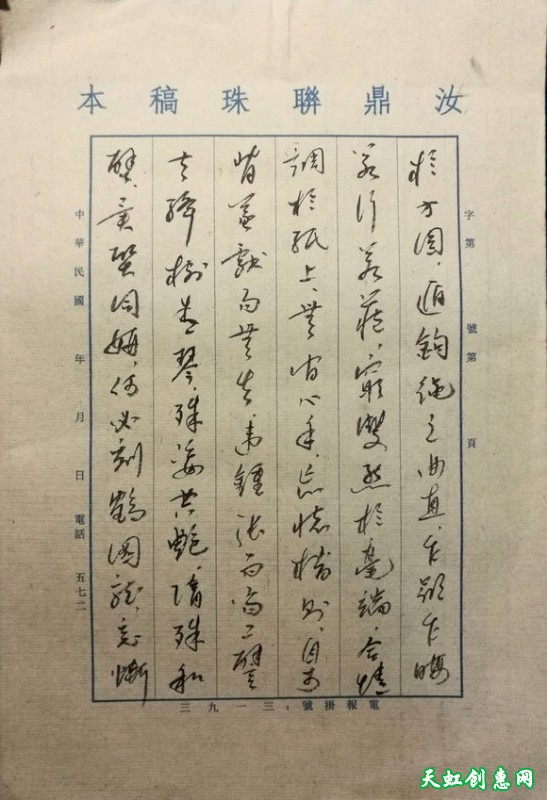 汝鼎聯珠稿本
字第 號第 頁
於方圓，遁鉤繩之曲直，乍顯乍晦
若行若藏，窮變態於毫端，合情
調於紙上，無間心手，忘懷楷則，自可
背羲獻而無失，違鍾張而尚工譬
夫絳樹青琴，殊姿共艷，隋珠和
璧，異質同妍，何必刻鶴圖龍，竟慚
中華民國 年 月 日 電話 五七二
電報掛號：三一九三
天虹创惠网